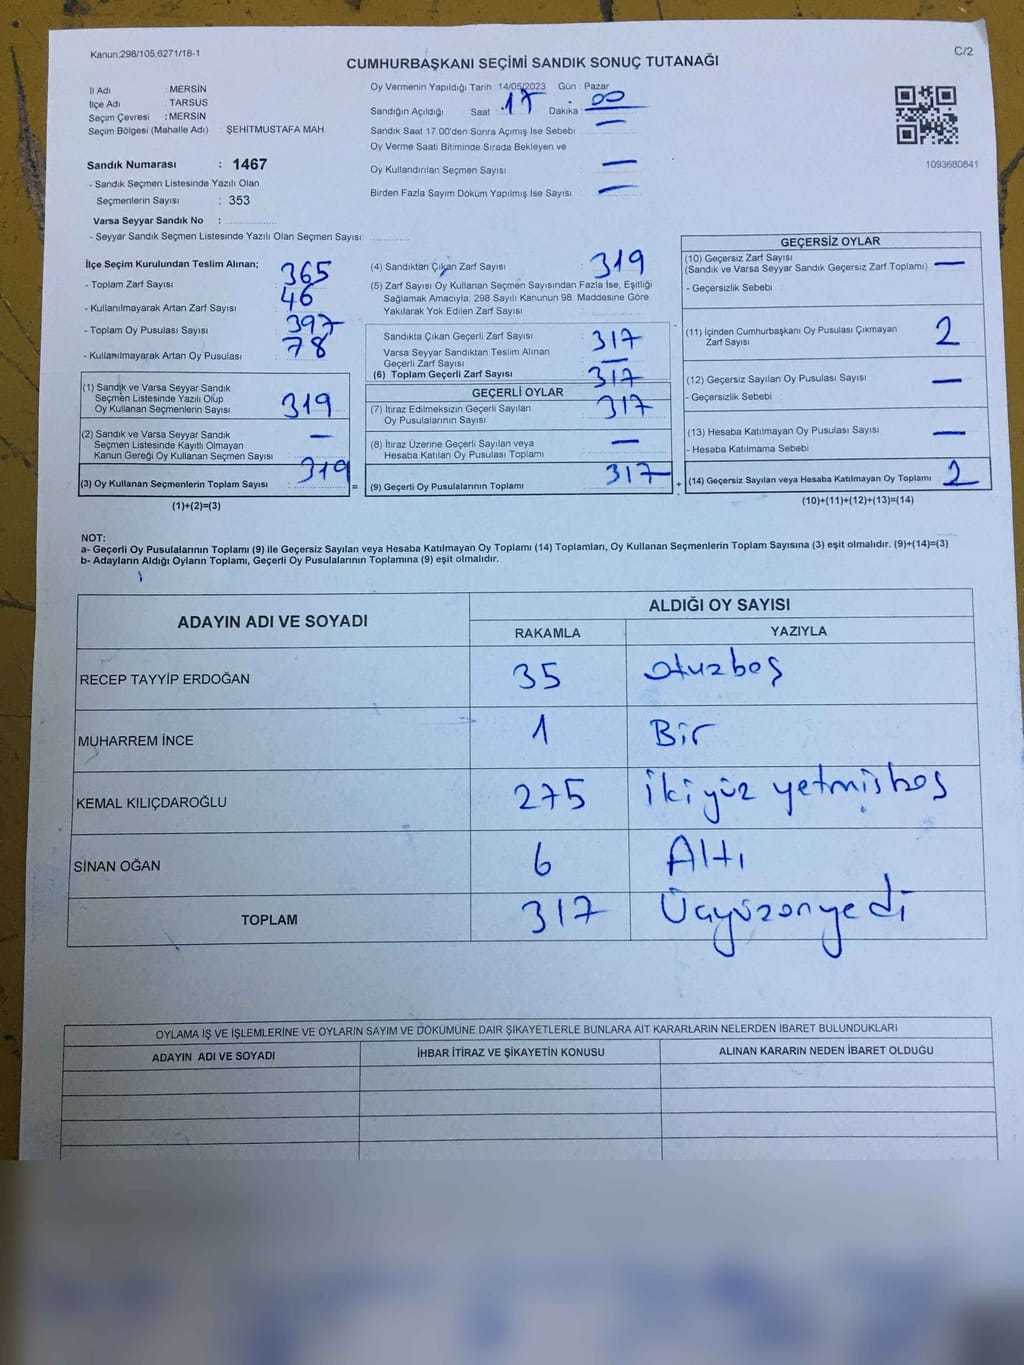 Kanun:298/105,6271/18-1
C/2
CUMHURBAŞKANI SEÇİMİ SANDIK SONUÇ TUTANAĞI
İl Adı : MERSİN
İlçe Adı : TARSUS
Seçim Çevresi : MERSİN
Seçim Bölgesi (Mahalle Adı) : ŞEHİTMUSTAFA MAH.
Oy Vermenin Yapıldığı Tarih 14/05/2023 Gün : Pazar
Sandığın Açıldığı Saat : 17 Dakika : 00
Sandık Saat 17.00'den Sonra Açımış İse Sebebi : —
Oy Verme Saati Bitiminde Sırada Bekleyen ve
Oy Kullandırılan Seçmen Sayısı : —
Birden Fazla Sayım Döküm Yapılmış İse Sayısı : —
1093680841
Sandık Numarası : 1467
- Sandık Seçmen Listesinde Yazılı Olan
Seçmenlerin Sayısı : 353
Varsa Seyyar Sandık No :
- Seyyar Sandık Seçmen Listesinde Yazılı Olan Seçmen Sayısı:
İlçe Seçim Kurulundan Teslim Alınan;
- Toplam Zarf Sayısı : 365
- Kullanılmayarak Artan Zarf Sayısı : 46
- Toplam Oy Pusulası Sayısı : 397
- Kullanılmayarak Artan Oy Pusulası : 78
(1) Sandık ve Varsa Seyyar Sandık
Seçmen Listesinde Yazılı Olup
Oy Kullanan Seçmenlerin Sayısı : 319
(2) Sandık ve Varsa Seyyar Sandık
Seçmen Listesinde Kayıtlı Olmayan
Kanun Gereği Oy Kullanan Seçmen Sayısı : —
(3) Oy Kullanan Seçmenlerin Toplam Sayısı : 319
(1)+(2)=(3)
=
(4) Sandıktan Çıkan Zarf Sayısı : 319
(5) Zarf Sayısı Oy Kullanan Seçmen Sayısından Fazla İse, Eşitliği
Sağlamak Amacıyla; 298 Sayılı Kanunun 98. Maddesine Göre
Yakılarak Yok Edilen Zarf Sayısı :
Sandıkta Çıkan Geçerli Zarf Sayısı : 317
Varsa Seyyar Sandıktan Teslim Alınan
Geçerli Zarf Sayısı : —
(6) Toplam Geçerli Zarf Sayısı : 317
GEÇERLİ OYLAR
(7) İtiraz Edilmeksizin Geçerli Sayılan
Oy Pusulalarının Sayısı : 317
(8) İtiraz Üzerine Geçerli Sayılan veya
Hesaba Katılan Oy Pusulası Toplamı : —
(9) Geçerli Oy Pusulalarının Toplamı : 317
+
GEÇERSİZ OYLAR
(10) Geçersiz Zarf Sayısı
(Sandık ve Varsa Seyyar Sandık Geçersiz Zarf Toplamı) : —
- Geçersizlik Sebebi :
(11) İçinden Cumhurbaşkanı Oy Pusulası Çıkmayan
Zarf Sayısı : 2
(12) Geçersiz Sayılan Oy Pusulası Sayısı : —
- Geçersizlik Sebebi :
(13) Hesaba Katılmayan Oy Pusulası Sayısı : —
- Hesaba Katılmama Sebebi :
(14) Geçersiz Sayılan veya Hesaba Katılmayan Oy Toplamı : 2
(10)+(11)+(12)+(13)=(14)
NOT:
a- Geçerli Oy Pusulalarının Toplamı (9) ile Geçersiz Sayılan veya Hesaba Katılmayan Oy Toplamı (14) Toplamları, Oy Kullanan Seçmenlerin Toplam Sayısına (3) eşit olmalıdır. (9)+(14)=(3)
b- Adayların Aldığı Oyların Toplamı, Geçerli Oy Pusulalarının Toplamına (9) eşit olmalıdır.
ADAYIN ADI VE SOYADI
ALDIĞI OY SAYISI
RAKAMLA YAZIYLA
RECEP TAYYİP ERDOĞAN 35 otuzbeş
MUHARREM İNCE 1 Bir
KEMAL KILIÇDAROĞLU 275 ikiyüz yetmişbeş
SİNAN OĞAN 6 Altı
TOPLAM 317 Üçyüzonyedi
OYLAMA İŞ VE İŞLEMLERİNE VE OYLARIN SAYIM VE DÖKÜMÜNE DAİR ŞİKAYETLERLE BUNLARA AİT KARARLARIN NELERDEN İBARET BULUNDUKLARI
ADAYIN ADI VE SOYADI İHBAR İTİRAZ VE ŞİKAYETİN KONUSU ALINAN KARARIN NEDEN İBARET OLDUĞU